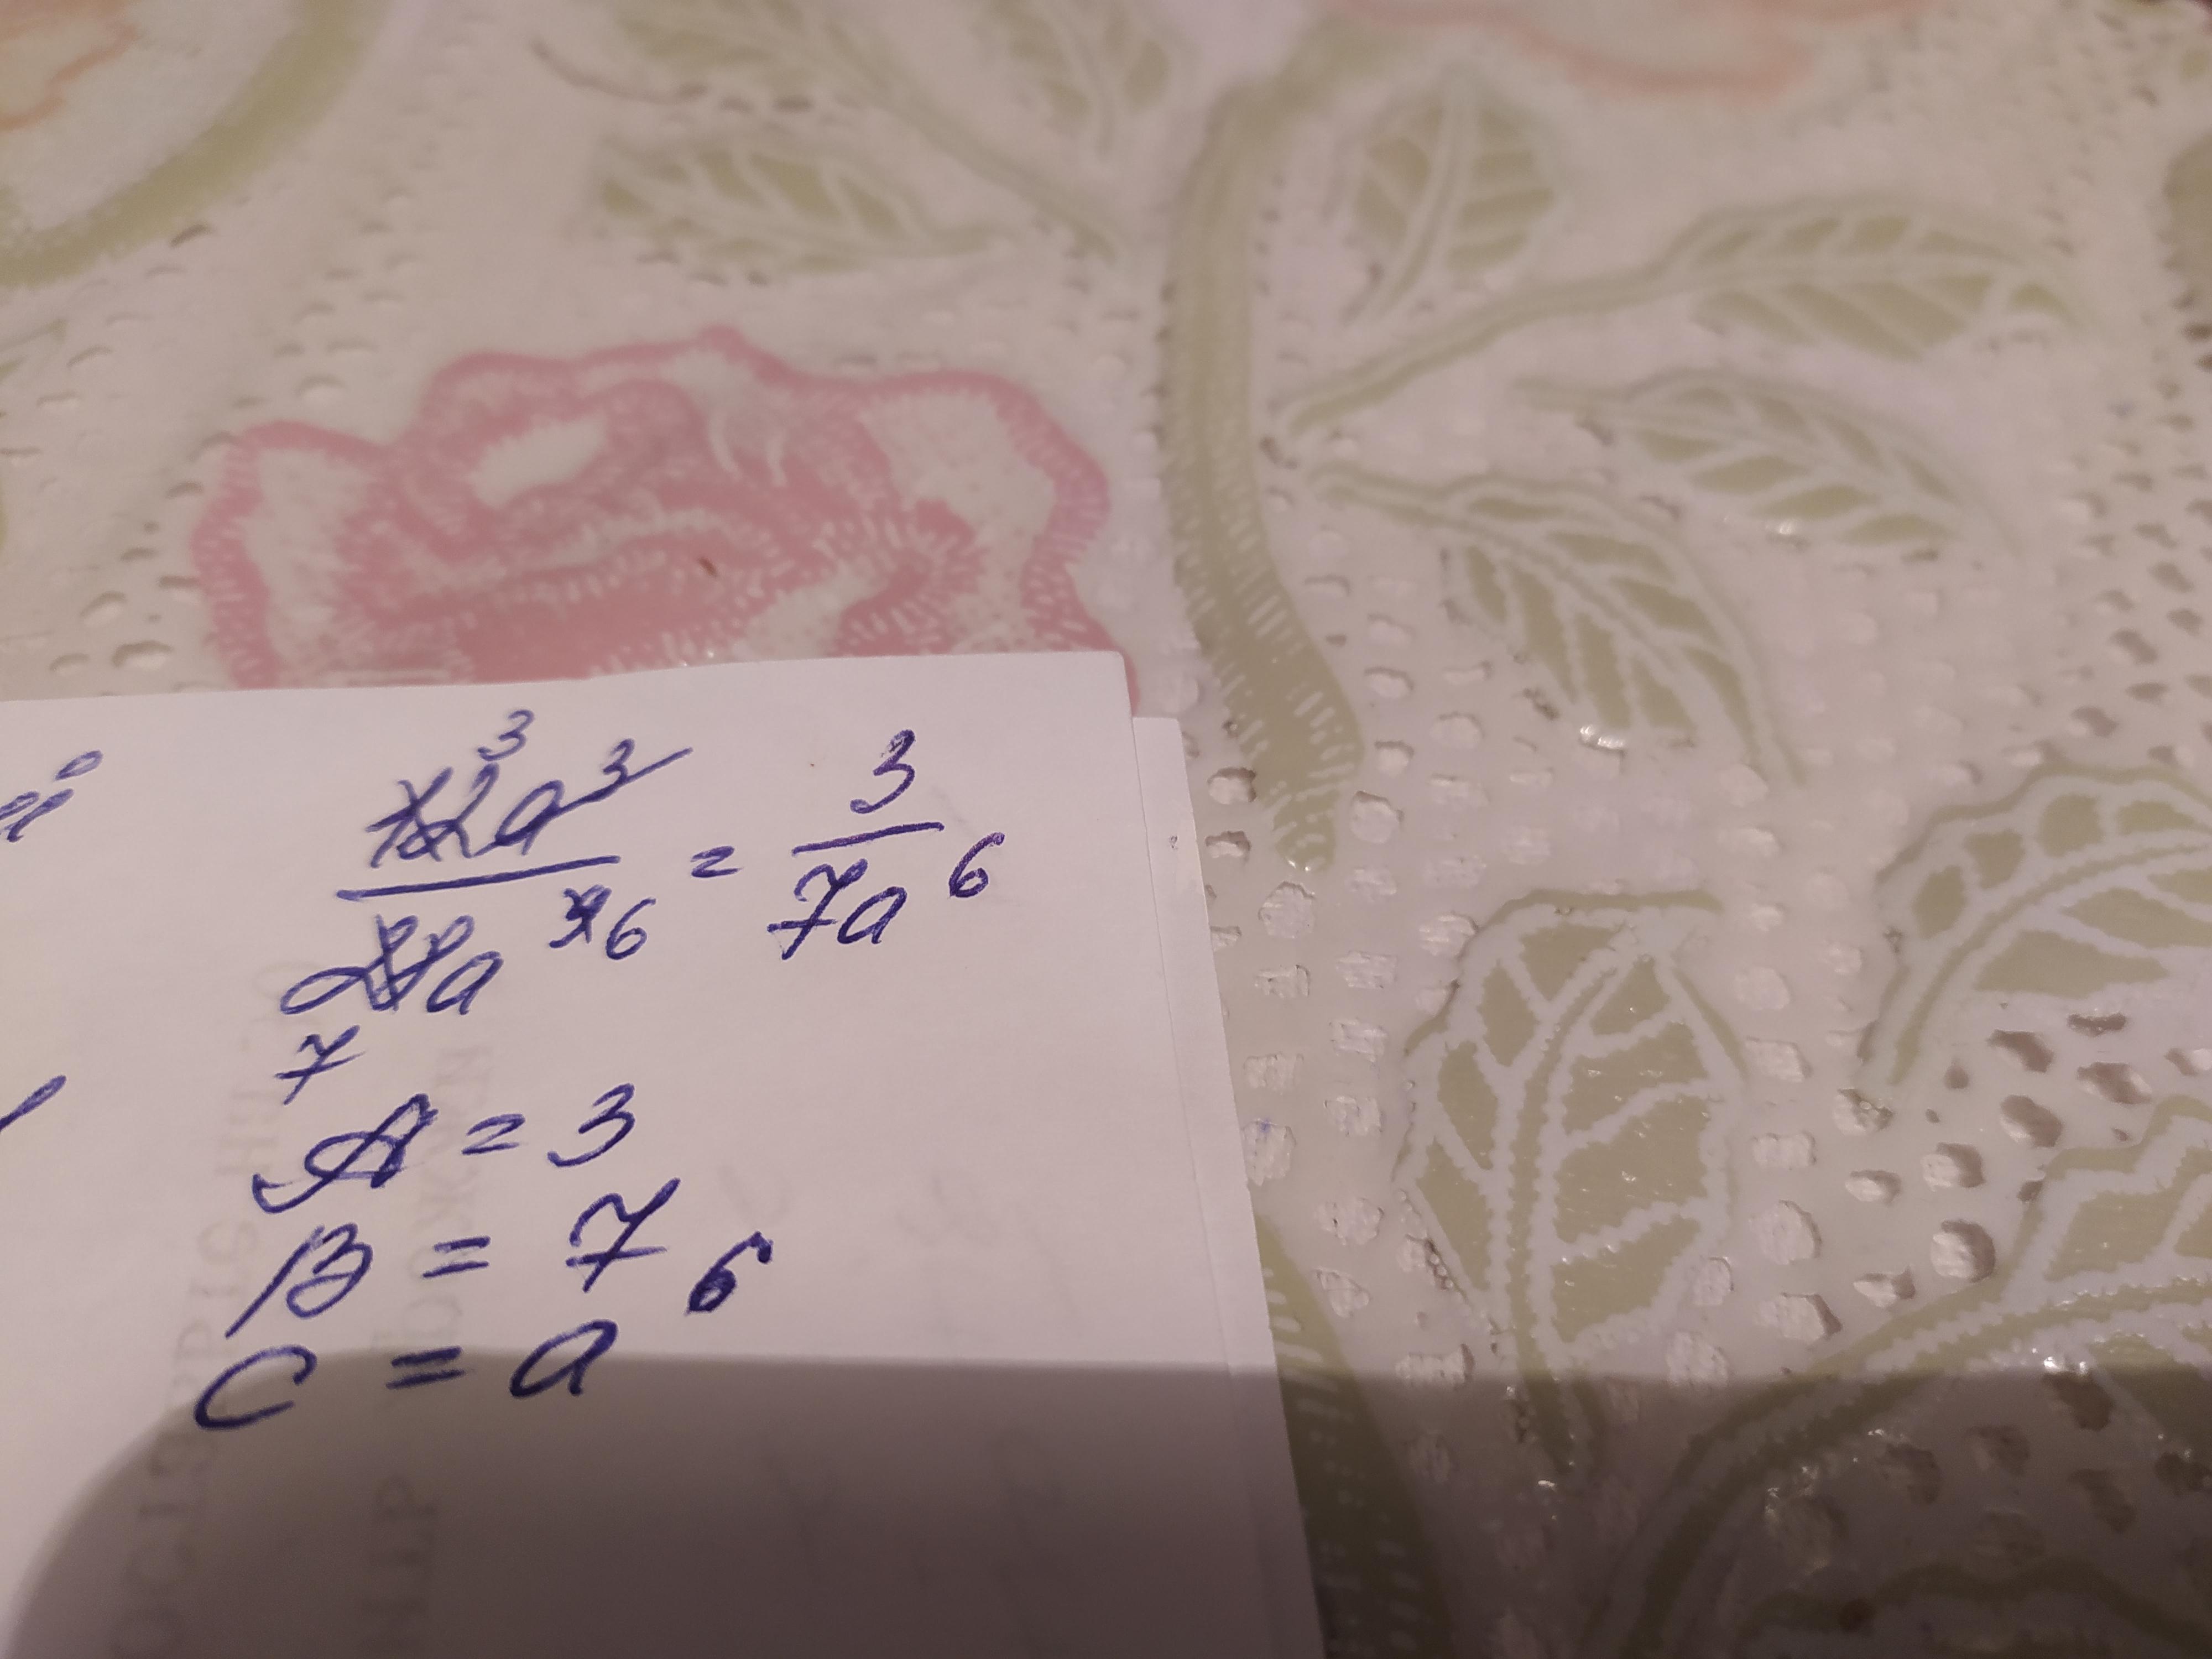 3
12a³ / 28a⁹ ⁶ = 3 / 7a⁶
7
A = 3
B = 7
C = a⁶